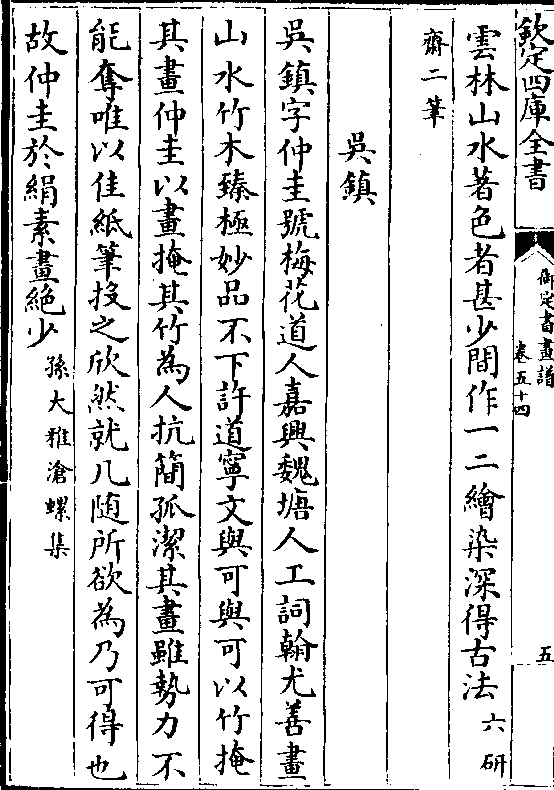 欽定四庫全書
御定書畫譜
卷五十四
五
雲林山水著色者甚少間作一二繪染深得古法六研
齋二筆
吳鎮
吳鎮字仲圭號梅花道人嘉興魏塘人工詞翰尤善畫
山水竹木臻極妙品不下許道寧文與可與可以竹掩
其畫仲圭以畫掩其竹為人抗簡孤潔其畫雖勢力不
能奪唯以佳紙筆投之欣然就几随所欲為乃可得也
故仲圭於絹素畫絶少孫大雅滄螺集